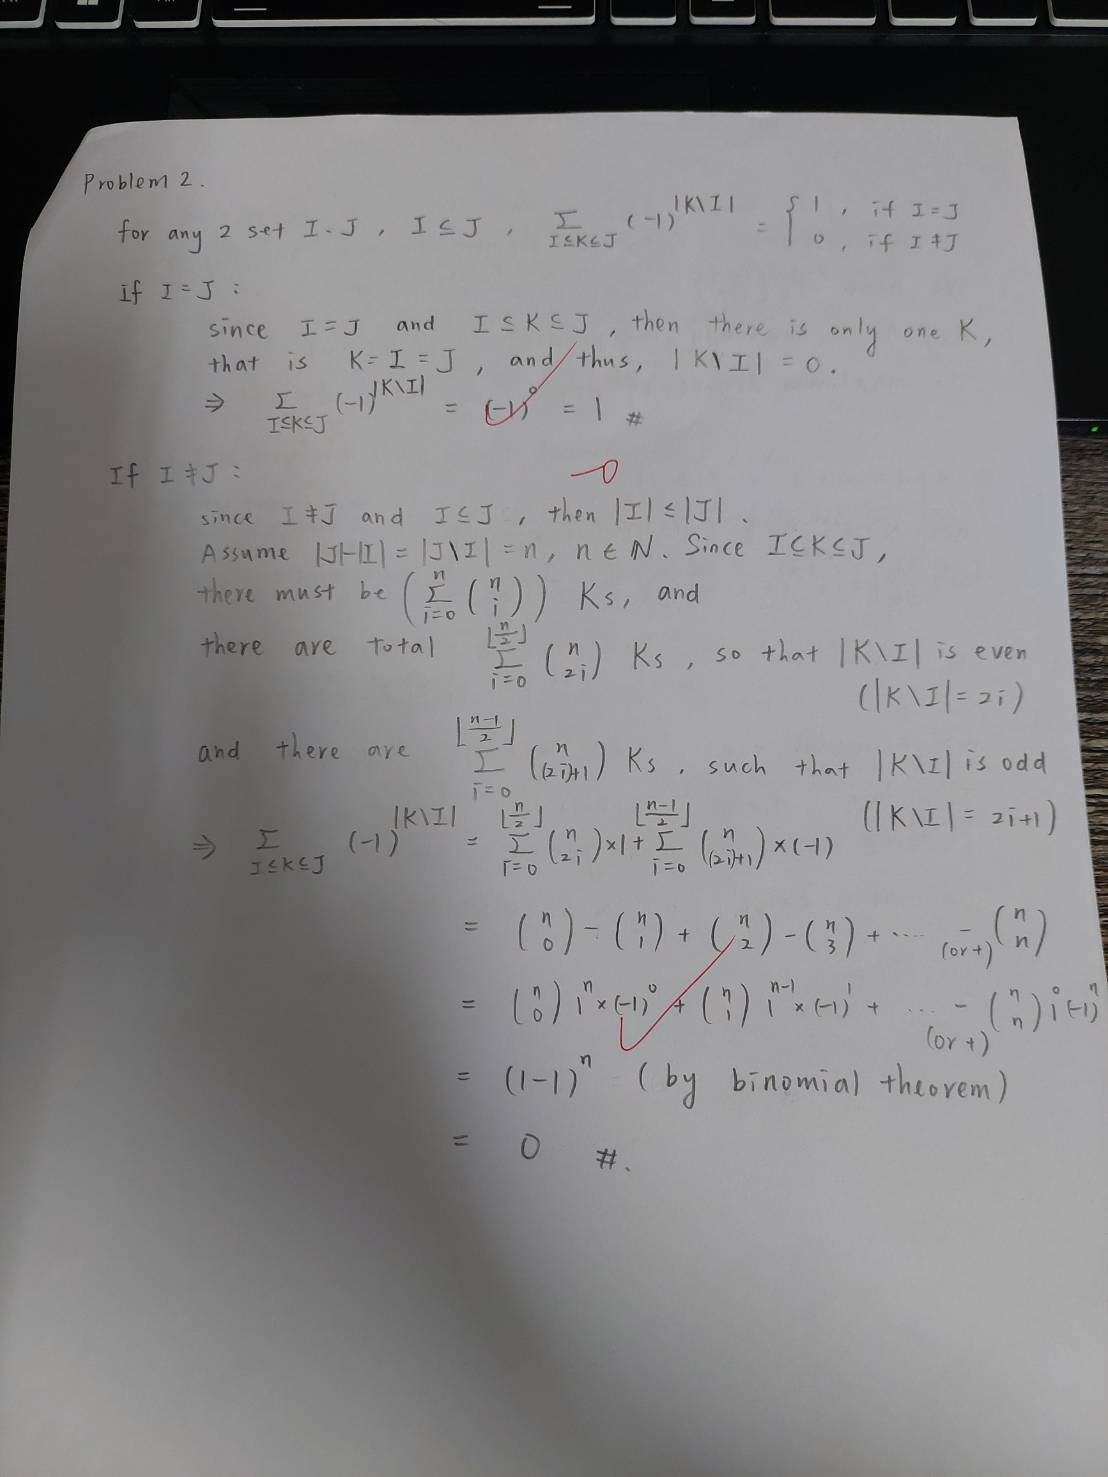 Problem 2.
for any 2 set I、J , I ⊆ J , Σ_{I⊆K⊆J} (-1)^{|K\I|} = { 1 , if I=J
0 , if I≠J
if I=J :
since I=J and I ⊆ K ⊆ J , then there is only one K,
that is K=I=J , and thus, |K\I| = 0.
⇒ Σ_{I⊆K⊆J} (-1)^{|K\I|} = (-1)^0 = 1 #
-0
If I≠J :
since I≠J and I⊆J , then |I| ≤ |J| .
Assume |J|-|I| = |J\I| = n, n ∈ N. Since I⊆K⊆J,
there must be (Σ_{i=0}^{n} (n i)) Ks, and
there are total Σ_{i=0}^{⌊n/2⌋} (n 2i) Ks , so that |K\I| is even
(|K\I|= 2i)
and there are Σ_{i=0}^{⌊(n-1)/2⌋} (n (2i)+1) Ks , such that |K\I| is odd
(|K\I| = 2i+1)
⇒ Σ_{I⊆K⊆J} (-1)^{|K\I|} = Σ_{i=0}^{⌊n/2⌋} (n 2i)×1 + Σ_{i=0}^{⌊(n-1)/2⌋} (n (2i)+1)×(-1)
= (n 0) - (n 1) + (n 2) - (n 3) + .... - (or +) (n n)
= (n 0) 1^n × (-1)^0 + (n 1) 1^{n-1} × (-1)^1 + .... - (or +) (n n) 1^0 (-1)^n
= (1-1)^n (by binomial theorem)
= 0 #.